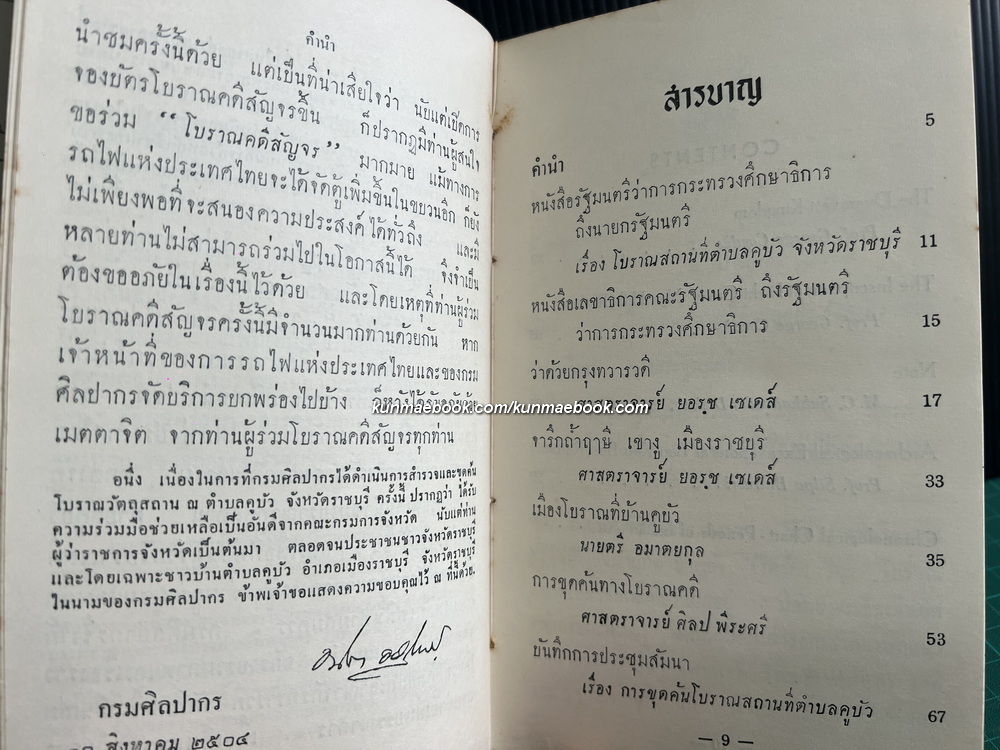 คำนำ
นำชมครั้งนี้ด้วย แต่เป็นที่น่าเสียใจว่า นับแต่เปิดการ
จองบัตรโบราณคดีสัญจรขึ้น ก็ปรากฏมีท่านผู้สนใจ
ขอร่วม “โบราณคดีสัญจร” มากมาย แม้ทางการ
รถไฟแห่งประเทศไทยจะได้จัดตู้เพิ่มขึ้นในขบวนอีก ก็ยัง
ไม่เพียงพอที่จะสนองความประสงค์ได้ทั่วถึง และมี
หลายท่านไม่สามารถร่วมไปในโอกาสนี้ได้ จึงจำเป็น
ต้องขออภัยในเรื่องนี้ไว้ด้วย และโดยเหตุที่ท่านผู้ร่วม
โบราณคดีสัญจรครั้งนี้มีจำนวนมากท่านด้วยกัน หาก
เจ้าหน้าที่ของการรถไฟแห่งประเทศไทยและของกรม
ศิลปากรจัดบริการบกพร่องไปบ้าง
เมตตาจิต จากท่านผู้ร่วมโบราณคดีสัญจรทุกท่าน
อนึ่ง เนื่องในการที่กรมศิลปากรได้ดำเนินการสำรวจและขุดค้น
โบราณวัตถุสถาน ณ ตำบลคูบัว จังหวัดราชบุรี ครั้งนี้ ปรากฏว่า ได้รับ
ความร่วมมือช่วยเหลือเป็นอันดีจากคณะกรมการจังหวัด นับแต่ท่าน
ผู้ว่าราชการจังหวัดเป็นต้นมา ตลอดจนประชาชนชาวจังหวัดราชบุรี
และโดยเฉพาะชาวบ้านตำบลคูบัว อำเภอเมืองราชบุรี จังหวัดราชบุรี
ในนามของกรมศิลปากร ข้าพเจ้าขอแสดงความขอบคุณไว้ ณ ที่นี้ด้วย.
กรมศิลปากร
สิงหาคม ๒๕๐๔
สารบาญ
คำนำ 5
หนังสือรัฐมนตรีว่าการกระทรวงศึกษาธิการ
ถึงนายกรัฐมนตรี
เรื่อง โบราณสถานที่ตำบลคูบัว จังหวัดราชบุรี 11
หนังสือเลขาธิการคณะรัฐมนตรี ถึงรัฐมนตรี
ว่าการกระทรวงศึกษาธิการ 15
ว่าด้วยกรุงทวารวดี
ศาสตราจารย์ ยอร์ช เซเดส์ 17
จารึกถ้ำฤๅษี เขางู เมืองราชบุรี
ศาสตราจารย์ ยอร์ช เซเดส์ 33
เมืองโบราณที่บ้านคูบัว
นายตรี อมาตยกุล 35
การขุดค้นทางโบราณคดี
ศาสตราจารย์ ศิลป พีระศรี 53
บันทึกการประชุมสัมนา
เรื่อง การขุดค้นโบราณสถานที่ตำบลคูบัว 67
— 9 —
kunmaebook.com/kunmaebook.com